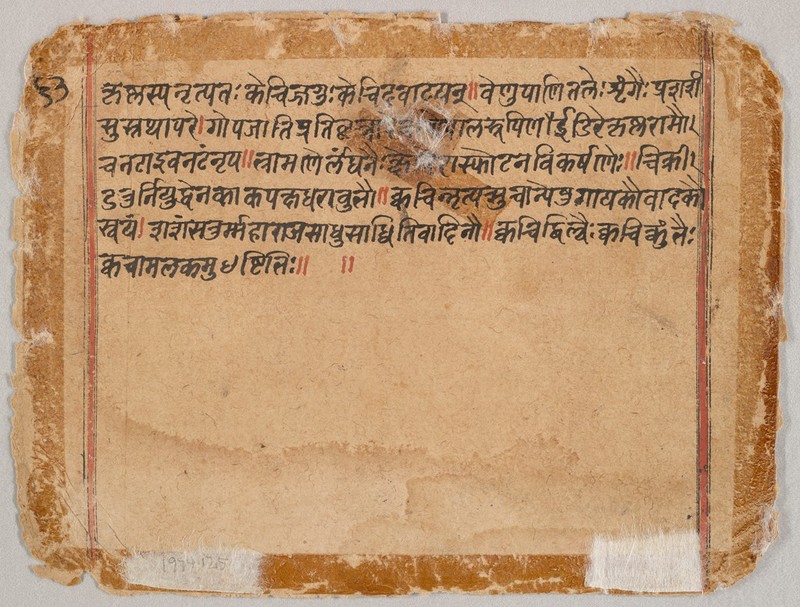 ६३
कृष्णस्य नृत्यतः केचिज्जगुः केचिदवादयन्॥ वेणुपाणितलेः शृंगैः प्रशशं
सुस्तथापरे। गोपजातिप्रति गोपालरूपिणौ। ईडिरे कृष्णरामौ
च नटा इव नटं नृप॥ भ्रामणैर्लंघनैः स्फोटनविकर्षणैः॥ चिक्री
डतुर्नियुद्धेन काकपक्षधरावुभौ॥ क्वचिन्नृत्यत्सु चान्येषु गायकौ वादकौ
स्वयं। शशंसतुर्महाराज साधु साध्विति वादिनौ॥ क्वचिद्विल्वैः क्वचित्कुंभैः
क्वचामलकमुष्टिभिः॥ ॥